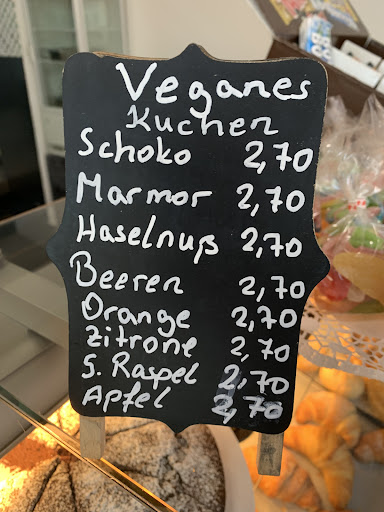 Veganes
Kuchen
Schoko 2,70
Marmor 2,70
Haselnuß 2,70
Beeren 2,70
Orange 2,70
Zitrone 2,70
S. Raspel 2,70
Apfel 2,70